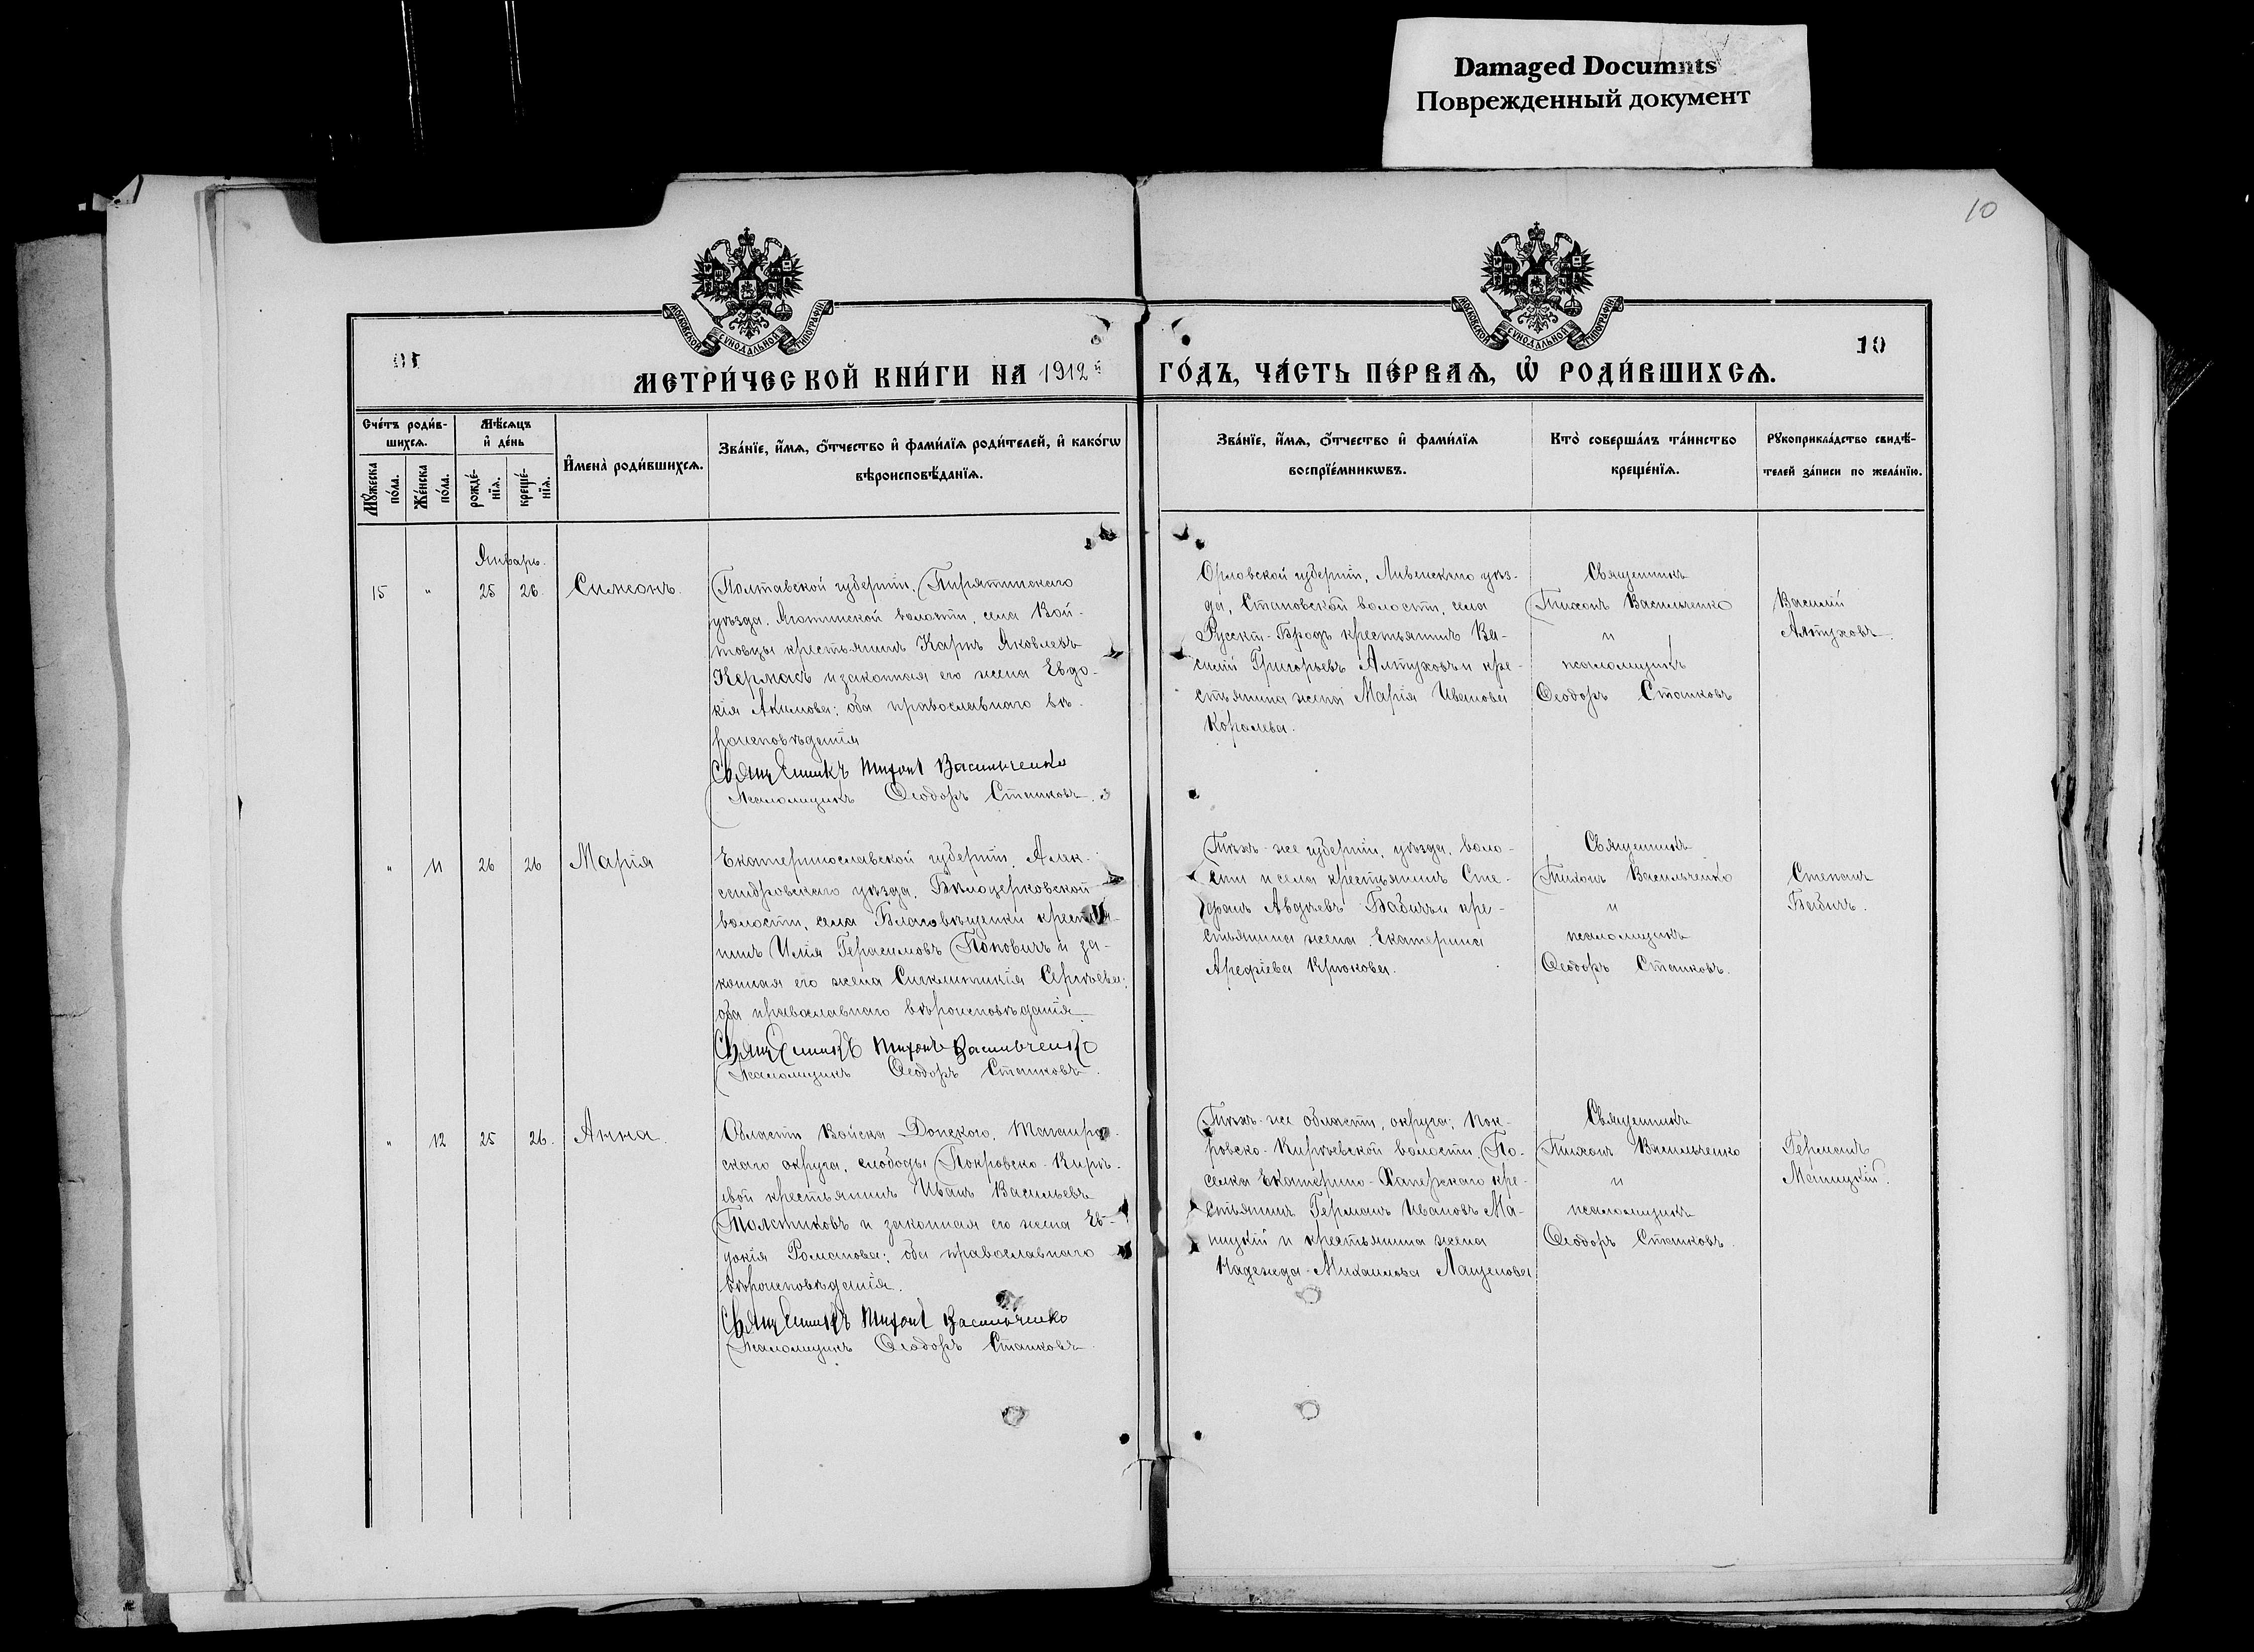 Damaged Documnts
Поврежденный документ
10
МОСКОВСКОЙ СУНОДАЛЬНОЙ ТИПОГРАФІИ
МОСКОВСКОЙ СУНОДАЛЬНОЙ ТИПОГРАФІИ
10
МЕТРИ́ЧЕСКОЙ КНИ́ГИ НА 1912й ГО́ДЪ, ЧА́СТЬ ПЕ́РВАѦ, Ѡ҆ РОДИ́ВШИХСѦ.
Сче́тъ роди́в-
шихсѧ.
Мꙋ́жеска по́ла.
Же́нска по́ла.
Мѣ́сѧцъ
и҆ де́нь
рожде́-
нїѧ.
креще́-
нїѧ.
И҆мена̀ роди́вшихсѧ.
Зва́нїе, и҆́мѧ, ѻ҆́тчество и҆ фами́лїѧ роди́телей, и҆ како́гѡ
вѣроисповѣ́данїѧ.
Зва́нїе, и҆́мѧ, ѻ҆́тчество и҆ фами́лїѧ
воспрїе́мникѡвъ.
Кто̀ соверша́лъ та́инство
креще́нїѧ.
Рꙋкоприкла́дство свидѣ́-
телей за́писи по жела́нїю.
Январь.
15 " 25 26. Симеонъ.
Полтавской губерніи, Пирятинскаго
уѣзда, Яготинской волости, села Вой-
товцы крестьянинъ Карпъ Яковлевъ
Кермасъ и законная его жена Евдо-
кія Акимова; оба православнаго вѣ-
роисповѣданія
Священникъ Тихонъ Васильченко
Псаломщикъ Ѳеодоръ Станковъ.
Орловской губерніи, Ливенскаго уѣз-
да, Становской волости, села
Русскій-Бродъ крестьянинъ Ва-
силій Григорьевъ Алтуховъ и кре-
стьянина жена Марія Иванова
Королева.
Священникъ
Тихонъ Васильченко
и
псаломщикъ
Ѳеодоръ Станковъ
Василій
Алтуховъ.
" 11 26 26 Марія
Екатеринославской губерніи, Алек-
сандровскаго уѣзда, Бѣлоцерковской
волости, села Благовѣщенки крестья-
нинъ Илія Герасимовъ Поповичъ и за-
конная его жена Синклитикія Сергѣева;
оба православнаго вѣроисповѣданія
Священникъ Тихонъ Васильченко
Псаломщикъ Ѳеодоръ Станковъ.
Тѣхъ-же губерніи, уѣзда, воло-
сти и села крестьянинъ Сте-
фанъ Авдѣевъ Бабичъ и кре-
стьянина жена Екатерина
Арефіева Крюкова.
Священникъ
Тихонъ Васильченко
и
псаломщикъ
Ѳеодоръ Станковъ.
Степанъ
Бабичъ.
" 12 25 26. Анна.
Области Войска Донского, Таганрог-
скаго округа, слободы Покровско-Кирѣ-
евой крестьянинъ Иванъ Васильевъ
Толстиковъ и законная его жена Ев-
докія Романова; оба православнаго
вѣроисповѣданія.
Священникъ Тихонъ Васильченко
Псаломщикъ Ѳеодоръ Станковъ.
Тѣхъ-же области, округа; Пок-
ровско-Кирѣевской волости, По-
селка Екатерино-Хапержскаго кре-
стьянинъ Германъ Ивановъ Ма-
ницкій и крестьянина жена
Надежда Михаилова Лащенова
Священникъ
Тихонъ Васильченко
и
псаломщикъ
Ѳеодоръ Станковъ.
Германъ
Маницкій.